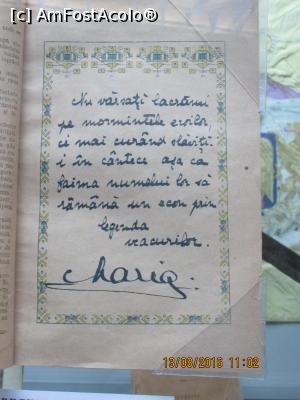 [c] AmFostAcolo®
Nu vărsați lacrămi
pe mormintele eroilor,
ci mai curând slăviți-
i în cântece așa ca
faima numelui lor să
rămână un ecou prin
legenda
veacurilor.
Maria.
13/08/2015 11:02